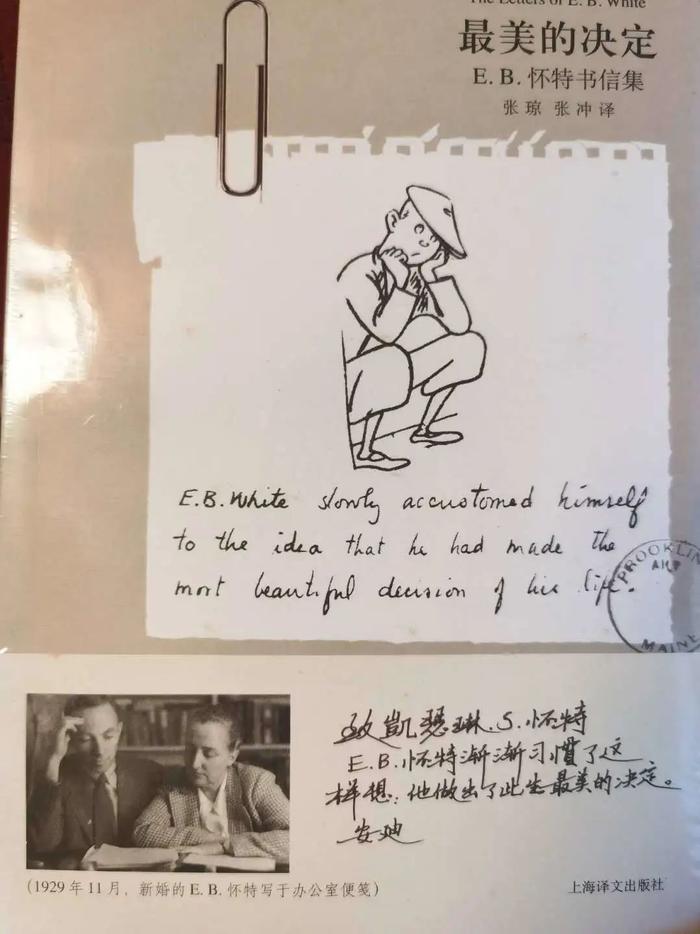 The Letters of E. B. White
最美的决定
E. B. 怀特书信集
张 琼 张 冲 译
E.B. White slowly accustomed himself
to the idea that he had made the
most beautiful decision of his life.
BROOKLIN
MAINE
致凯瑟琳.S.怀特
E.B.怀特渐渐习惯了这
样想:他做出了此生最美的决定。
安迪
(1929 年 11 月,新婚的 E. B. 怀特写于办公室便笺)
上海译文出版社